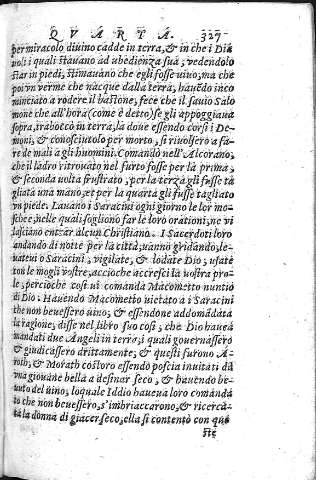 QVARTA. 327
per miracolo diuino cadde in terra, & in che i Dia
uoli i quali stauano ad ubedienza sua, vedendolo
star in piedi, stimauano che egli fosse uiuo, ma che
poi un verme che nacque dalla terra, hauẽdo inco
minciato a rodere il bastone, fece che il sauio Salo
mone che all'hora (come è detto) se gli appoggiaua
sopra, traboccò in terra, la doue essendo corsi i De-
moni, & conosciutolo per morto, si riuolsero a fa-
re de mali a gli huomini. Comandò nell'Alcorano,
che il ladro ritrouato nel furto fosse per la prima,
& seconda uolta frustato, per la terza gli fusse ta
gliata una mano, et per la quarta gli fusse tagliato
un piede. Lauano i Saracini ogni giorno le lor mo-
schee, nelle quali sogliono far le loro orationi, ne vi
lasciano entrar alcun Christiano. I Sacerdoti loro
andando di notte per la città, uanno gridando, le-
uateui o Saracini, vigilate, & lodate Dio, usate
con le mogli vostre, accioche accresci la uostra pro-
le, percioche così ui comanda Macometto nuntio
di Dio. Hauendo Macometto uietato a i Saracini
che non beuessero uino, & essendone addomãdata
la ragione, disse nel libro suo così, che Dio hauea
mandati due Angeli in terra, i quali gouernassero
& giudicassero drittamente, & questi furono A-
roth, & Morath costoro essendo poscia inuitati da
vna giouane bella a desinar seco, & hauendo be-
uuto del uino, loquale Iddio haueua loro comanda
to che non beuessero, s'imbriaccarono, & ricerca-
ta la donna di giacer seco, ella si contentò con que
ste